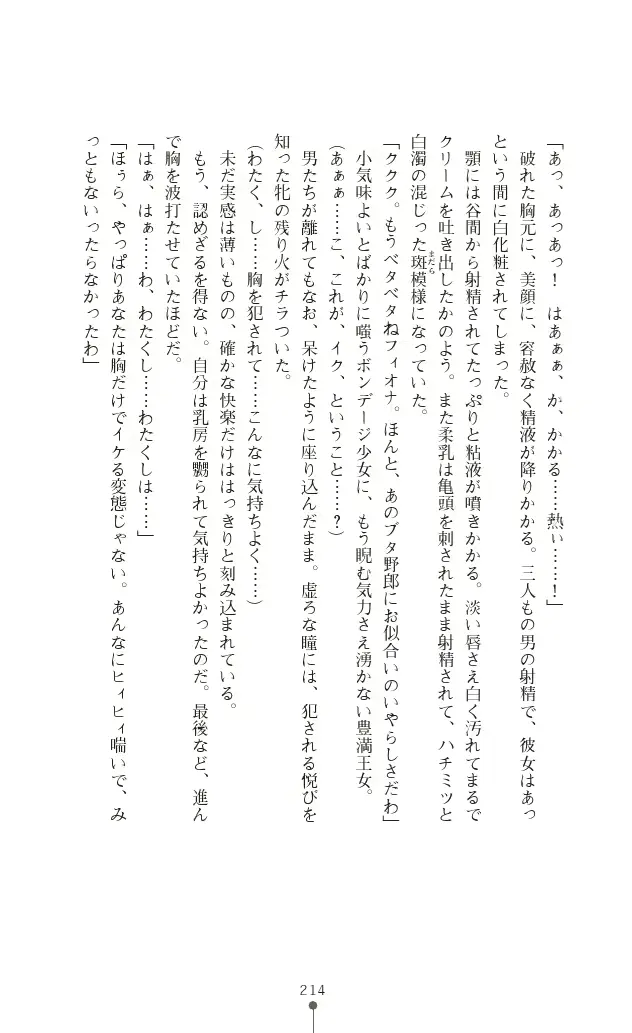 「あっ、あっあっ！　はあぁぁ、か、かかる……熱ぃ……！」
　破れた胸元に、美顔に、容赦なく精液が降りかかる。三人もの男の射精で、彼女はあっ
という間に白化粧されてしまった。
　顎には谷間から射精されてたっぷりと粘液が噴きかかる。淡い唇さえ白く汚れてまるで
クリームを吐き出したかのよう。また柔乳は亀頭を刺されたまま射精されて、ハチミツと
白濁の混じった斑模様になっていた。
まだら
「ククク。もうベタベタねフィオナ。ほんと、あのブタ野郎にお似合いのいやらしさだわ」
　小気味よいとばかりに嗤うボンデージ少女に、もう睨む気力さえ湧かない豊満王女。
（あぁぁ……こ、これが、イク、ということ……？）
　男たちが離れてもなお、呆けたように座り込んだまま。虚ろな瞳には、犯される悦びを
知った牝の残り火がチラついた。
（わたく、し……胸を犯されて……こんなに気持ちよく……）
　未だ実感は薄いものの、確かな快楽だけははっきりと刻み込まれている。
　もう、認めざるを得ない。自分は乳房を嬲られて気持ちよかったのだ。最後など、進ん
で胸を波打たせていたほどだ。
「はぁ、はぁ……わ、わたくし……わたくしは……」
「ほぅら、やっぱりあなたは胸だけでイケる変態じゃない。あんなにヒィヒィ喘いで、み
っともないったらなかったわ」
214